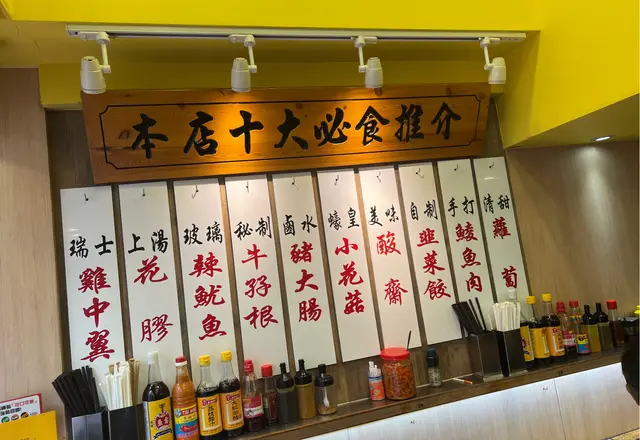 本店十大必食推介
瑞士雞中翼
上湯花膠
玻璃辣魷魚
秘制牛孖根
鹵水豬大腸
蠔皇小花菇
美味酸齋
自制韮菜餃
手打鯪魚肉
清甜蘿蔔